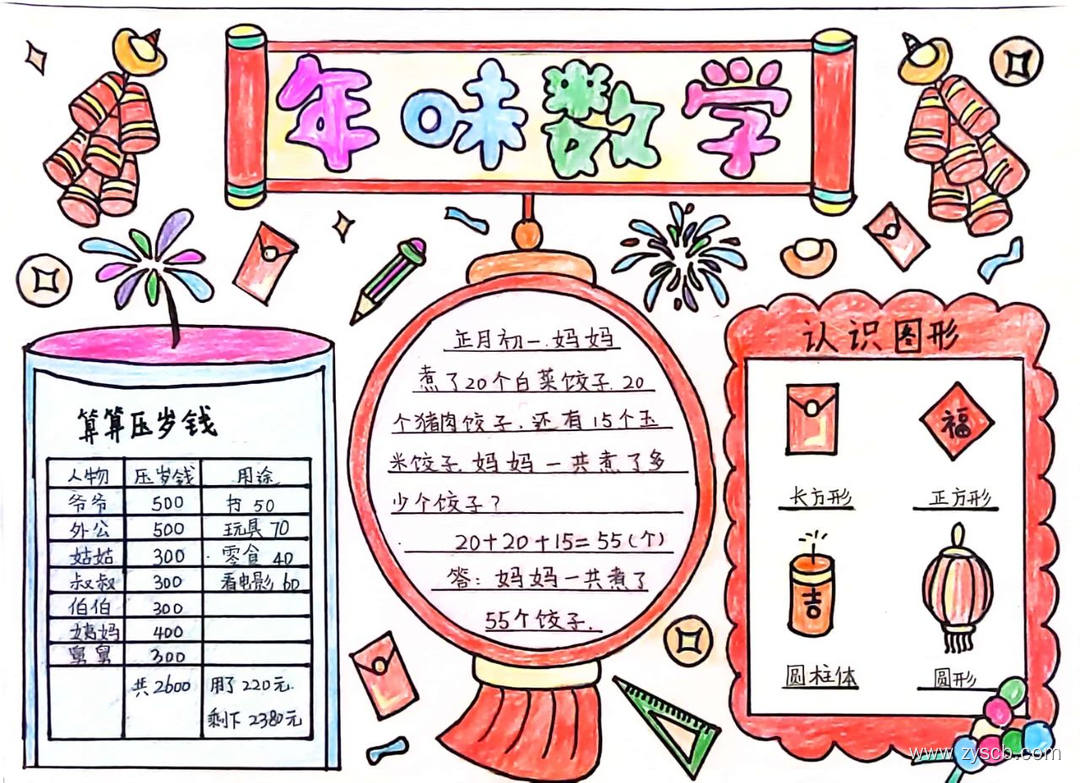 年味数学
算算压岁钱
人物 压岁钱 用途
爷爷 500 书 50
外公 500 玩具 70
姑姑 300 零食 40
叔叔 300 看电影 60
伯伯 300
姨妈 400
舅舅 300
共2600 用了220元.
剩下 2380元
正月初一.妈妈
煮了20个白菜饺子.20
个猪肉饺子.还有15个玉
米饺子.妈妈一共煮了多
少个饺子?
20+20+15=55(个)
答:妈妈一共煮了
55个饺子.
认识图形
福
长方形 正方形
吉
圆柱体 圆形
www.zyscb.com